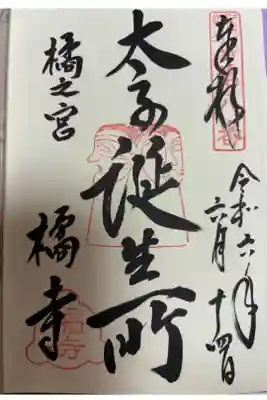 奉拝
令和六年
六月十四日
太子誕生所
橘之宮
橘寺